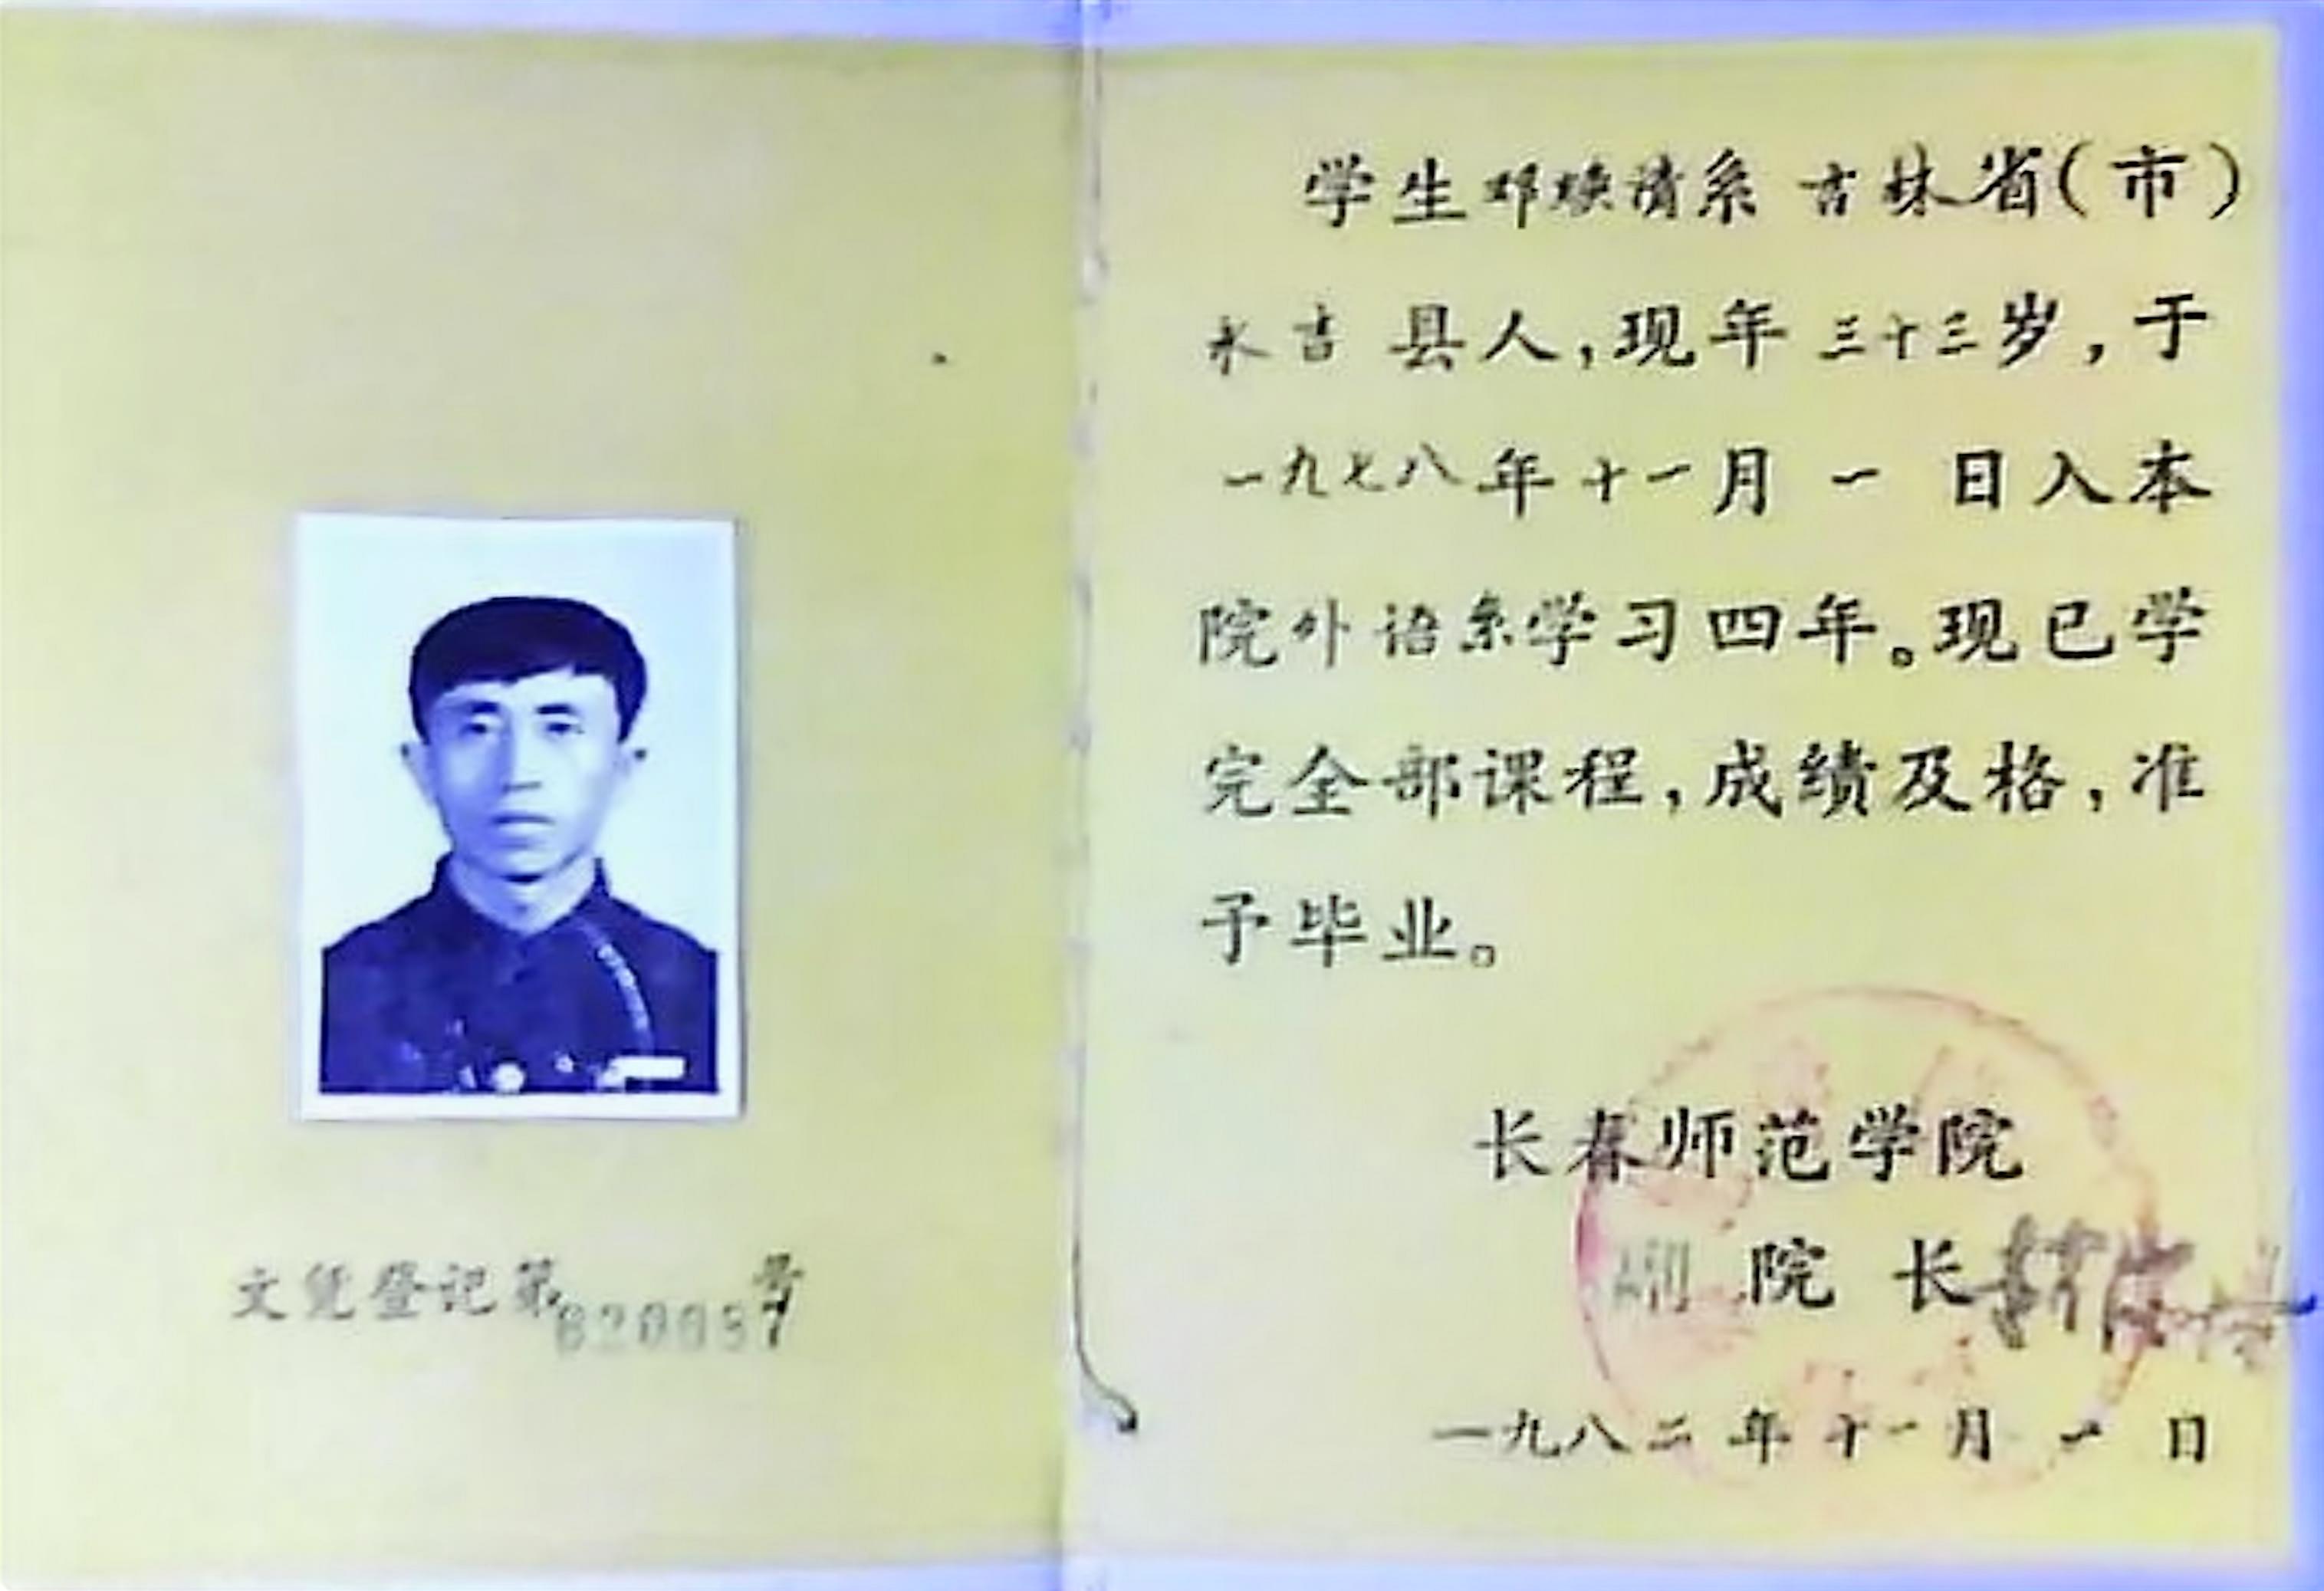 文凭登记第820037号
学生邓焕清系 吉林省(市)
永吉 县人,现年三十三岁,于
一九七八年十一月 一 日入本
院外语系学习四年。现已学
完全部课程,成绩及格,准
予毕业。
长春师范学院
副 院 长
一九八二年十一月 一 日